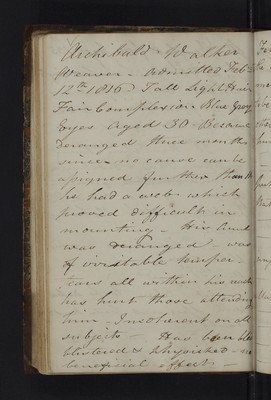 Archibald Walker
Weaver - Admitted Feby
12th 1816 Tall Light Hair
Fair Complexion Blue Grey
Eyes Aged 30 - Became
deranged three months
since - no cause can be
assigned further than
he had a web which
proved difficult in
mounting - His Aunt
was deranged - was
of irritable temper -
tears all within his reach
has hurt those attending
him - Incoherent on all
subjects - Has been
blistered & physicked - no
beneficial effect -